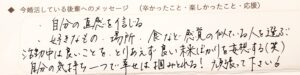 ◆ 今婚活している後輩へのメッセージ (辛かったこと・楽しかったこと・応援)
・自分の直感を信じる
・好きなもの・場所・食など感覚の似ている人を選ぶ
活動中は良いことを、とりあえず良い未来ばかりを妄想する(笑)
自分の気持ち一つで幸せは掴みとれる! 頑張って下さい